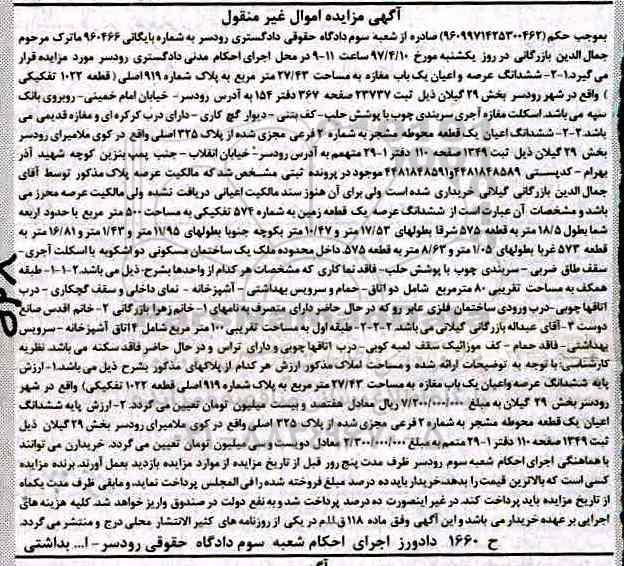 آگهی مزایده اموال غیر منقول
بموجب حکم (۹۶۰۹۹۷۱۴۲۵۳۰۰۴۶۲) صادره از شعبه سوم دادگاه حقوقی دادگستری رودسر به شماره بایگانی ۹۶۰۴۶۶ ماترک مرحوم
جمال الدین بازرگانی در روز یکشنبه مورخ ۹۷/۴/۱۰ ساعت ۱۱-۹ در محل اجرای احکام مدنی دادگستری رودسر مورد مزایده قرار
می گیرد.۱-۲- ششدانگ عرصه و اعیان یک باب مغازه به مساحت ۲۷/۴۳ متر مربع به پلاک شماره ۹۱۹ اصلی ( قطعه ۱۰۲۲ تفکیکی
) واقع در شهر رودسر بخش ۲۹ گیلان ذیل ثبت ۲۳۷۳۷ صفحه ۳۶۷ دفتر ۱۵۴ به آدرس رودسر- خیابان امام خمینی- روبروی بانک
سپه می باشد. اسکلت مغازه آجری سربندی چوب با پوشش حلب-کف بتنی - دیوار گچ کاری - دارای درب کرکره ای و مغازه قدیمی می
باشد.۲-۲- ششدانگ اعیان یک قطعه محوطه مشجر به شماره ۲ فرعی مجزی شده از پلاک ۳۲۵ اصلی واقع در کوی ملامیرای رودسر
بخش ۲۹ گیلان ذیل ثبت ۱۳۴۹ صفحه ۱۱۰ دفتر ۱-۲۹ متهمم به آدرس رودسر- خیابان انقلاب- جنب پمپ بنزین کوچه شهید آذر
بهرام - کدپستی ۴۴۸۱۸۴۸۵۸۹و۴۴۸۱۸۴۸۵۹۱ موجود در پرونده ثبتی مشخص شد که مالکیت عرصه پلاک مذکور توسط آقای
جمال الدین بازرگانی گیلانی خریداری شده است ولی برای آن هنوز سند مالکیت اعیانی دریافت نشده ولی مالکیت عرصه محرز می
باشد و مشخصات آن عبارت است از ششدانگ عرصه یک قطعه زمین به شماره ۵۷۴ تفکیکی به مساحت ۵۰۰ متر مربع با حدود اربعه
شما بطول ۱۸/۵ متر به قطعه ۵۷۵ شرقا بطولهای ۱۷/۵۳ متر و ۱۰/۴۷ متر بکوچه جنوبا بطولهای ۱۱/۹۵ متر و ۱/۴۳ متر و ۱۶/۸۱ متر به
قطعه ۵۷۳ غربا بطولهای ۱/۰۵ متر و ۸/۶۳ متر به قطعه ۵۷۵. داخل محدوده ملک یک ساختمان مسکونی دو اشکوبه با اسکلت آجری -
سقف طاق ضربی - سربندی چوب با پوشش حلب- فاقد نما کاری که مشخصات هر کدام از واحدها بشرح ذیل می باشد.۱-۱-۲- طبقه
همکف به مساحت تقریبی ۸۰ مترمربع شامل دو اتاق- حمام و سرویس بهداشتی - آشپزخانه - نمای داخلی و سقف گچکاری - درب
اتاقها چوبی-درب ورودی ساختمان فلزی عابر رو که در حال حاضر دارای متصرف به نامهای ۱- خانم زهرا بازرگانی ۲- خانم اقدس صانع
دوست ۳-آقای عبداله بازرگانی گیلانی می باشد.۲-۲-۲- طبقه اول به مساحت تقریبی ۱۰۰ متر مربع شامل ۴ اتاق آشپزخانه - سرویس
بهداشتی- فاقد حمام - کف موزائیک سقف لمبه کوبی-درب اتاقها چوبی و دارای تراس و در حال حاضر فاقد سکنه می باشد. نظریه
کارشناسی: با توجه به توضیحات ارائه شده و مساحت املاک مذکور ارزش هر کدام از پلاکهای مذکور بشرح ذیل می باشد.۱-ارزش
پایه ششدانگ عرصه واعیان یک باب مغازه به مساحت ۲۷/۴۳ متر مربع به پلاک شماره ۹۱۹ اصلی قطعه ۱۰۲۲ تفکیکی) واقع در شهر
رودسر بخش ۲۹ گیلان به مبلغ ۷/۲۰۰/۰۰۰/۰۰۰ ریال معادل هفتصد و بیست میلیون تومان تعیین می گردد.۲-ارزش پایه ششدانگ
اعیان یک قطعه محوطه مشجر به شماره ۲ فرعی مجزی شده از پلاک ۳۲۵ اصلی واقع در کوی ملامیرای رودسر بخش ۲۹ گیلان ذیل
ثبت ۱۳۴۹ صفحه ۱۱۰ دفتر ۱-۲۹ متمم به مبلغ ۲/۳۰۰/۰۰۰/۰۰۰ معادل دویست و سی میلیون تومان تعیین می گردد. خریداران می توانند
با هماهنگی اجرای احکام شعبه سوم رودسر ظرف مدت پنج روز قبل از تاریخ مزایده از موارد مزایده بازدید بعمل آورند. برنده مزایده
کسی است که بالاترین قیمت را بدهد،خریدار باید ده درصد مبلغ فروخته شده را فی المجلس پرداخت نماید و مابقی ظرف مدت یکماه
از تاریخ مزایده باید پرداخت کند. در غیر اینصورت ده درصد پرداخت شد و به نفع دولت در صندوق واریز خواهد شد. کلیه هزینه های
اجرایی بر عهده خریدار می باشد و این آگهی وفق ماده ۱۱۸ ق.ا.م در یکی از روزنامه های کثیر الانتشار محلی درج و منتشر می گردد.
ح ۱۶۶۰ دادورز اجرای احکام شعبه سوم دادگاه حقوقی رودسر-ا... بداشتی